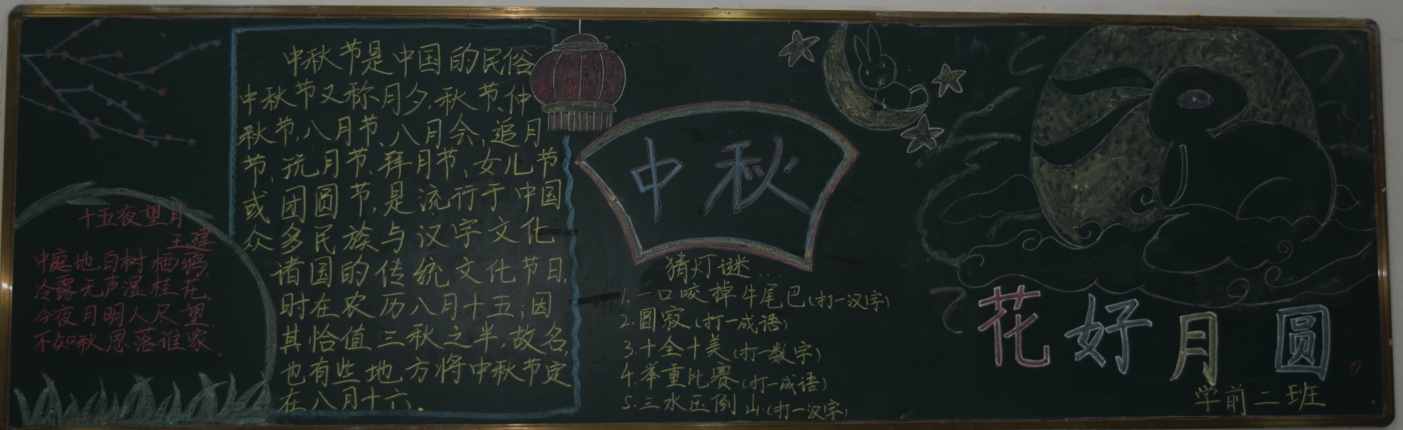 十五夜望月
王建
中庭地白树栖鸦,
冷露无声湿桂花,
今夜月明人尽望,
不知秋思落谁家。
中秋节是中国的民俗
中秋节又称月夕,秋节,仲
秋节,八月节,八月会,追月
节,玩月节,拜月节,女儿节
或团圆节,是流行于中国
众多民族与汉字文化
诸国的传统文化节日,
时在农历八月十五;因
其恰值三秋之半,故名,
也有些地方将中秋节定
在八月十六。
中秋
猜灯谜...
1.一口咬掉牛尾巴(打一汉字)
2.圆寂(打一成语)
3.十全十美(打一数字)
4.举重比赛(打一成语)
5.三水压倒山(打一汉字)
花好月圆
学前二班